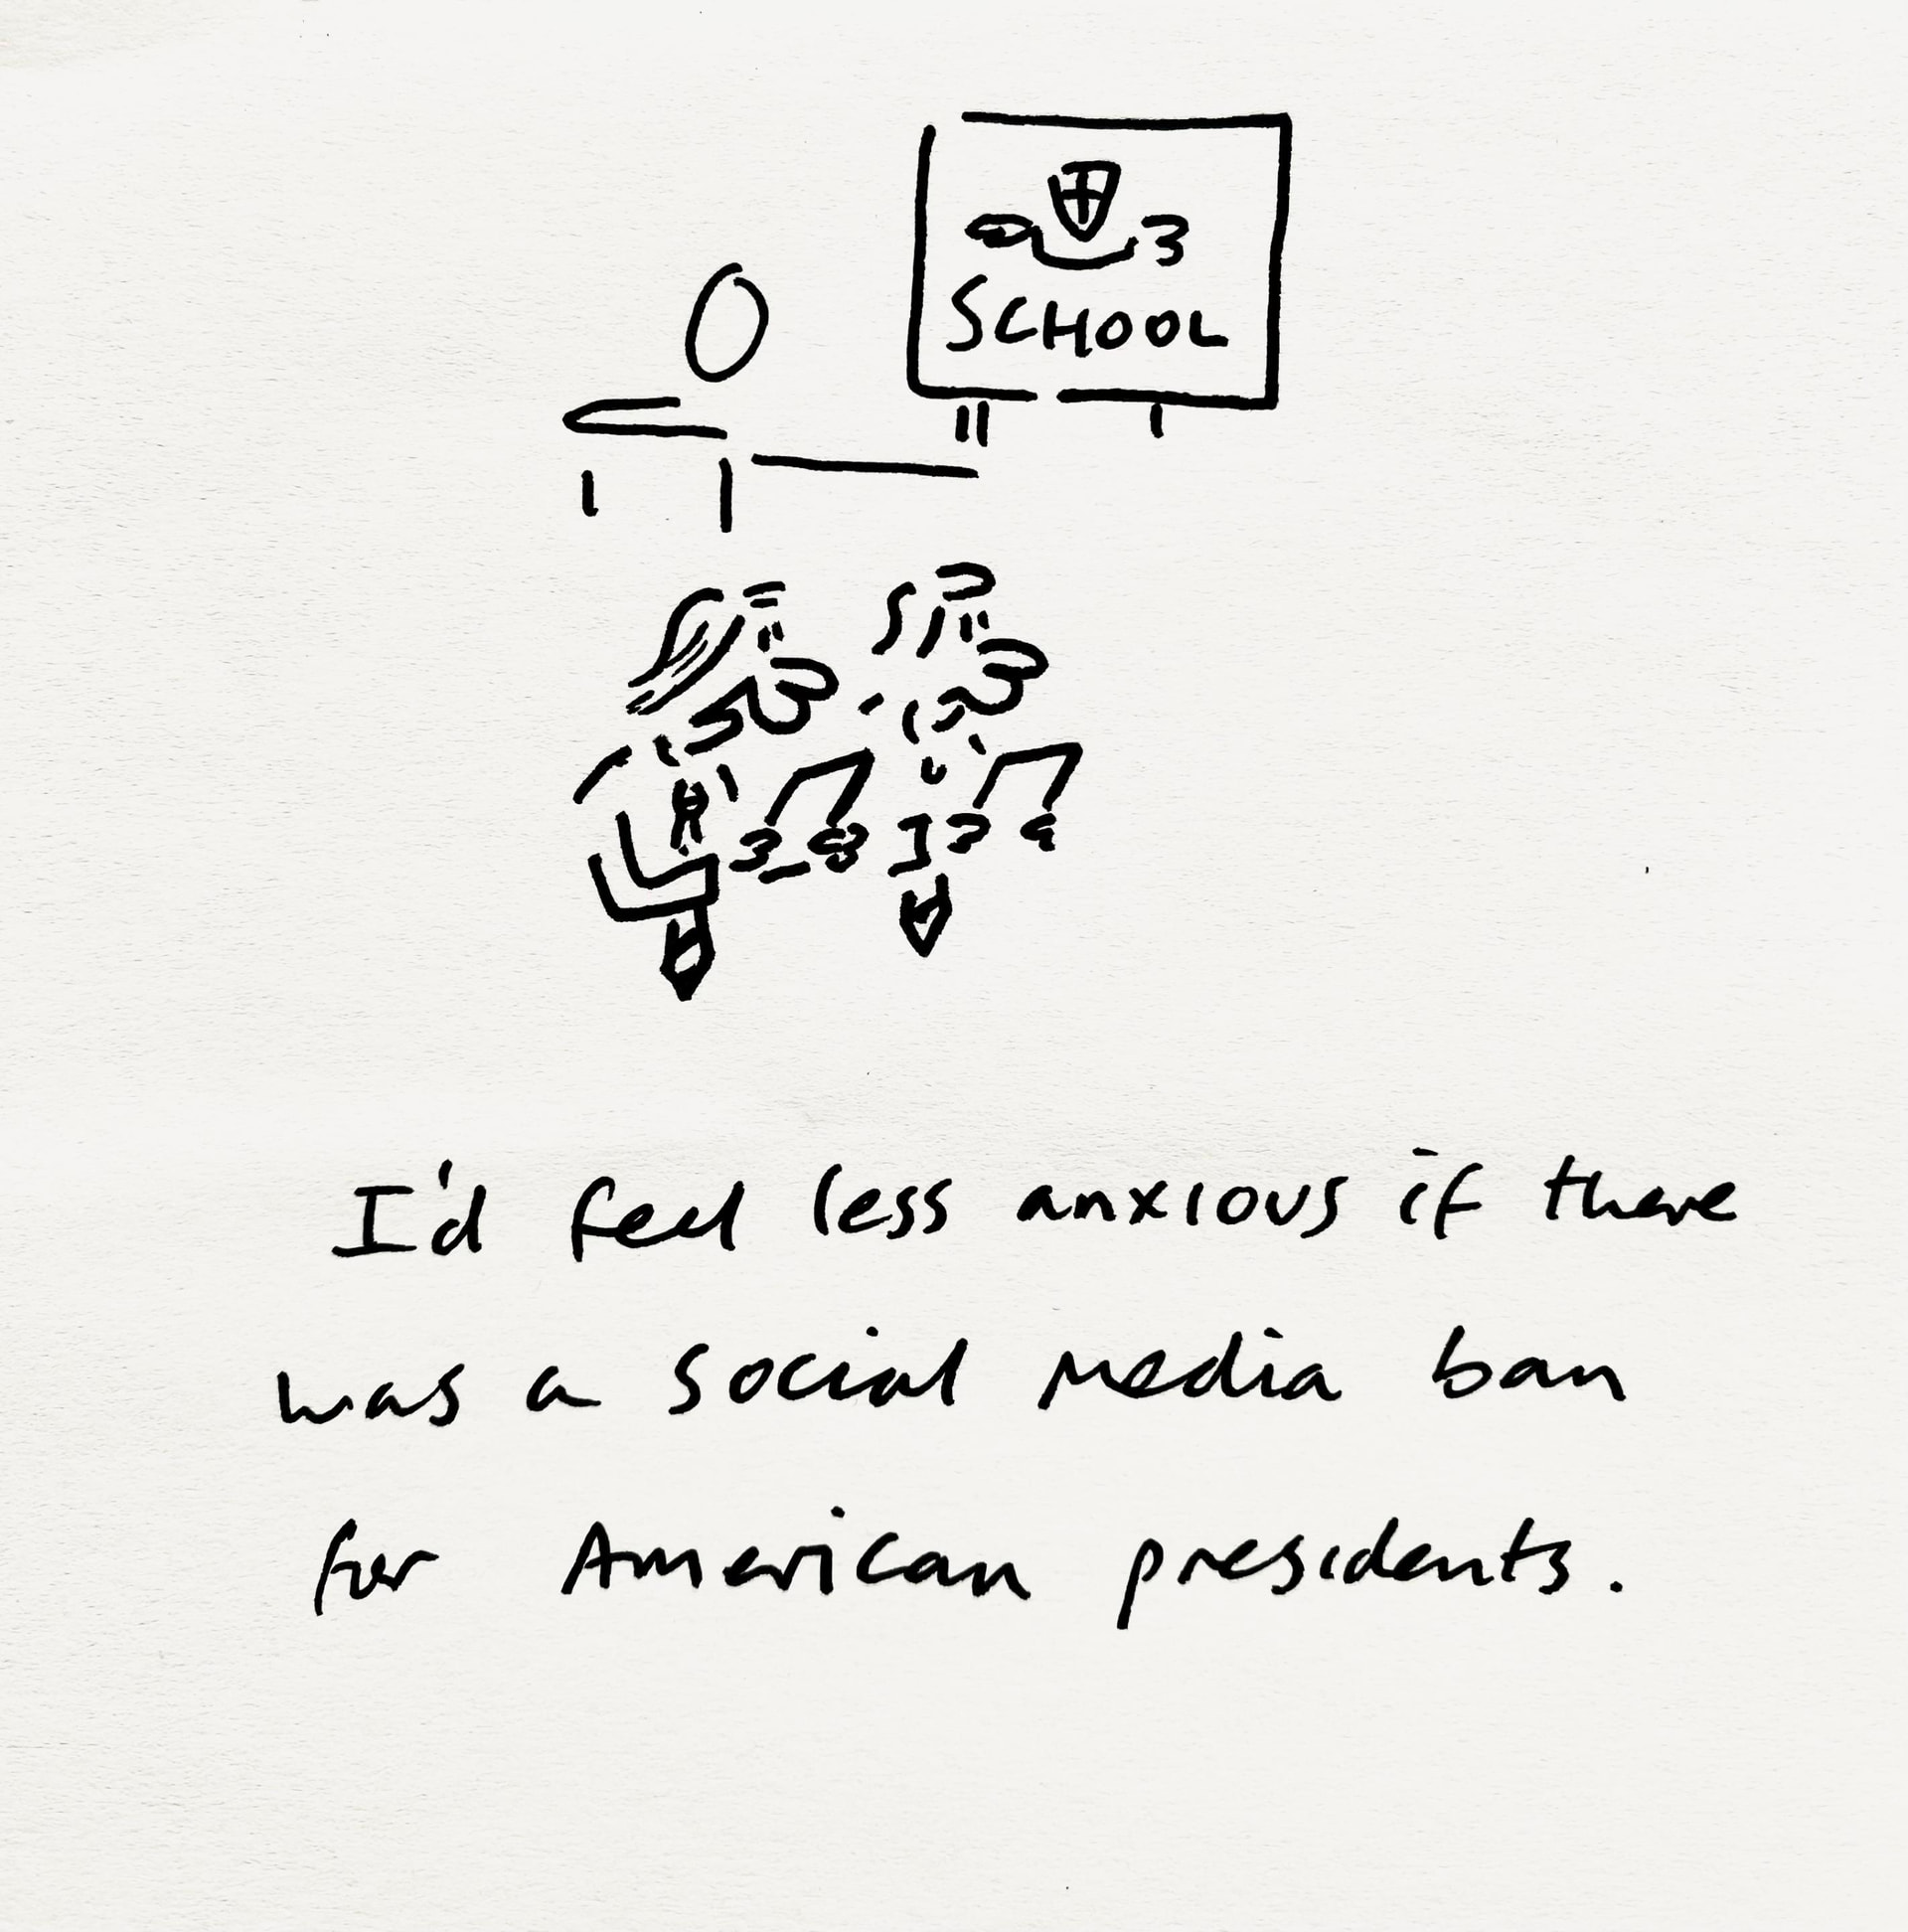 SCHOOL
I'd feel less anxious if there
was a social media ban
for American presidents.